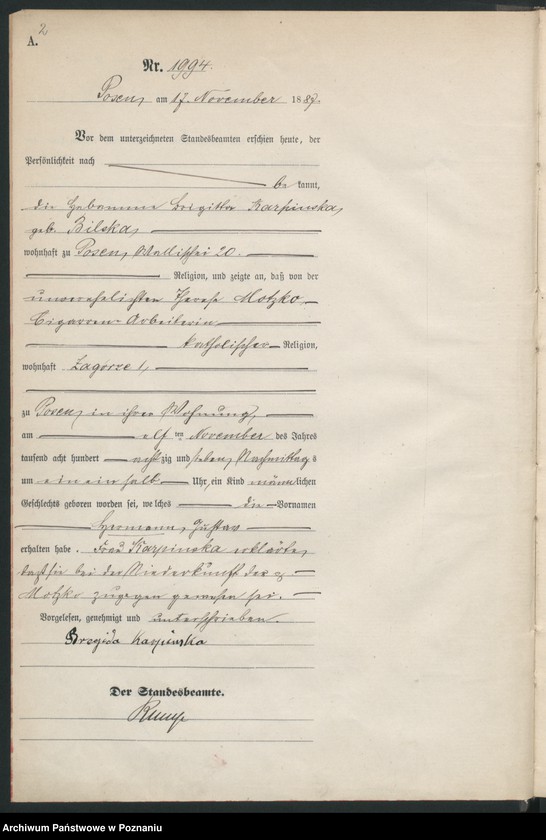 2
A.
Nr. 1994.
Posen, am 17. November 1887.
Vor dem unterzeichneten Standesbeamten erschien heute, der
Persönlichkeit nach
be kannt,
die Hebamme Brigitta Karpinska,
geb. Bilska,
wohnhaft zu Posen, Wallischei 20.
Religion, und zeigte an, daß von der
unverehelichten Therese Motzko,
Cigarren-Arbeiterin
katholischer Religion,
wohnhaft Zagorze 1,
zu Posen, in ihrer Wohnung,
am elf ten November des Jahres
tausend acht hundert achtzig und sieben, Nachmittags
um ein ein halb Uhr, ein Kind männlichen
Geschlechts geboren worden sei, welches die Vornamen
Hermann, Gustav
erhalten habe. Frau Karpinska erklärte,
daß sie bei der Niederkunft der
Motzko zugegen gewesen sei.
Vorgelesen, genehmigt und unterschrieben.
Brygida Karpinska
Der Standesbeamte.
Archiwum Państwowe w Poznaniu